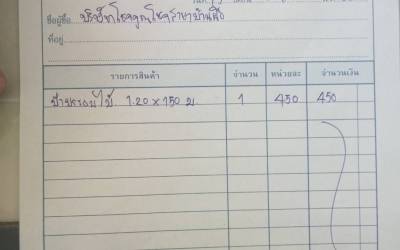 ชื่อผู้ซื้อ บริษัทโรจกุณโชค สาขาบ้านผือ
ที่อยู่
รายการสินค้า จำนวน หน่วยละ จำนวนเงิน
ป้ายกรอบไม้ 1.20 x 150 ม. 1 450 450